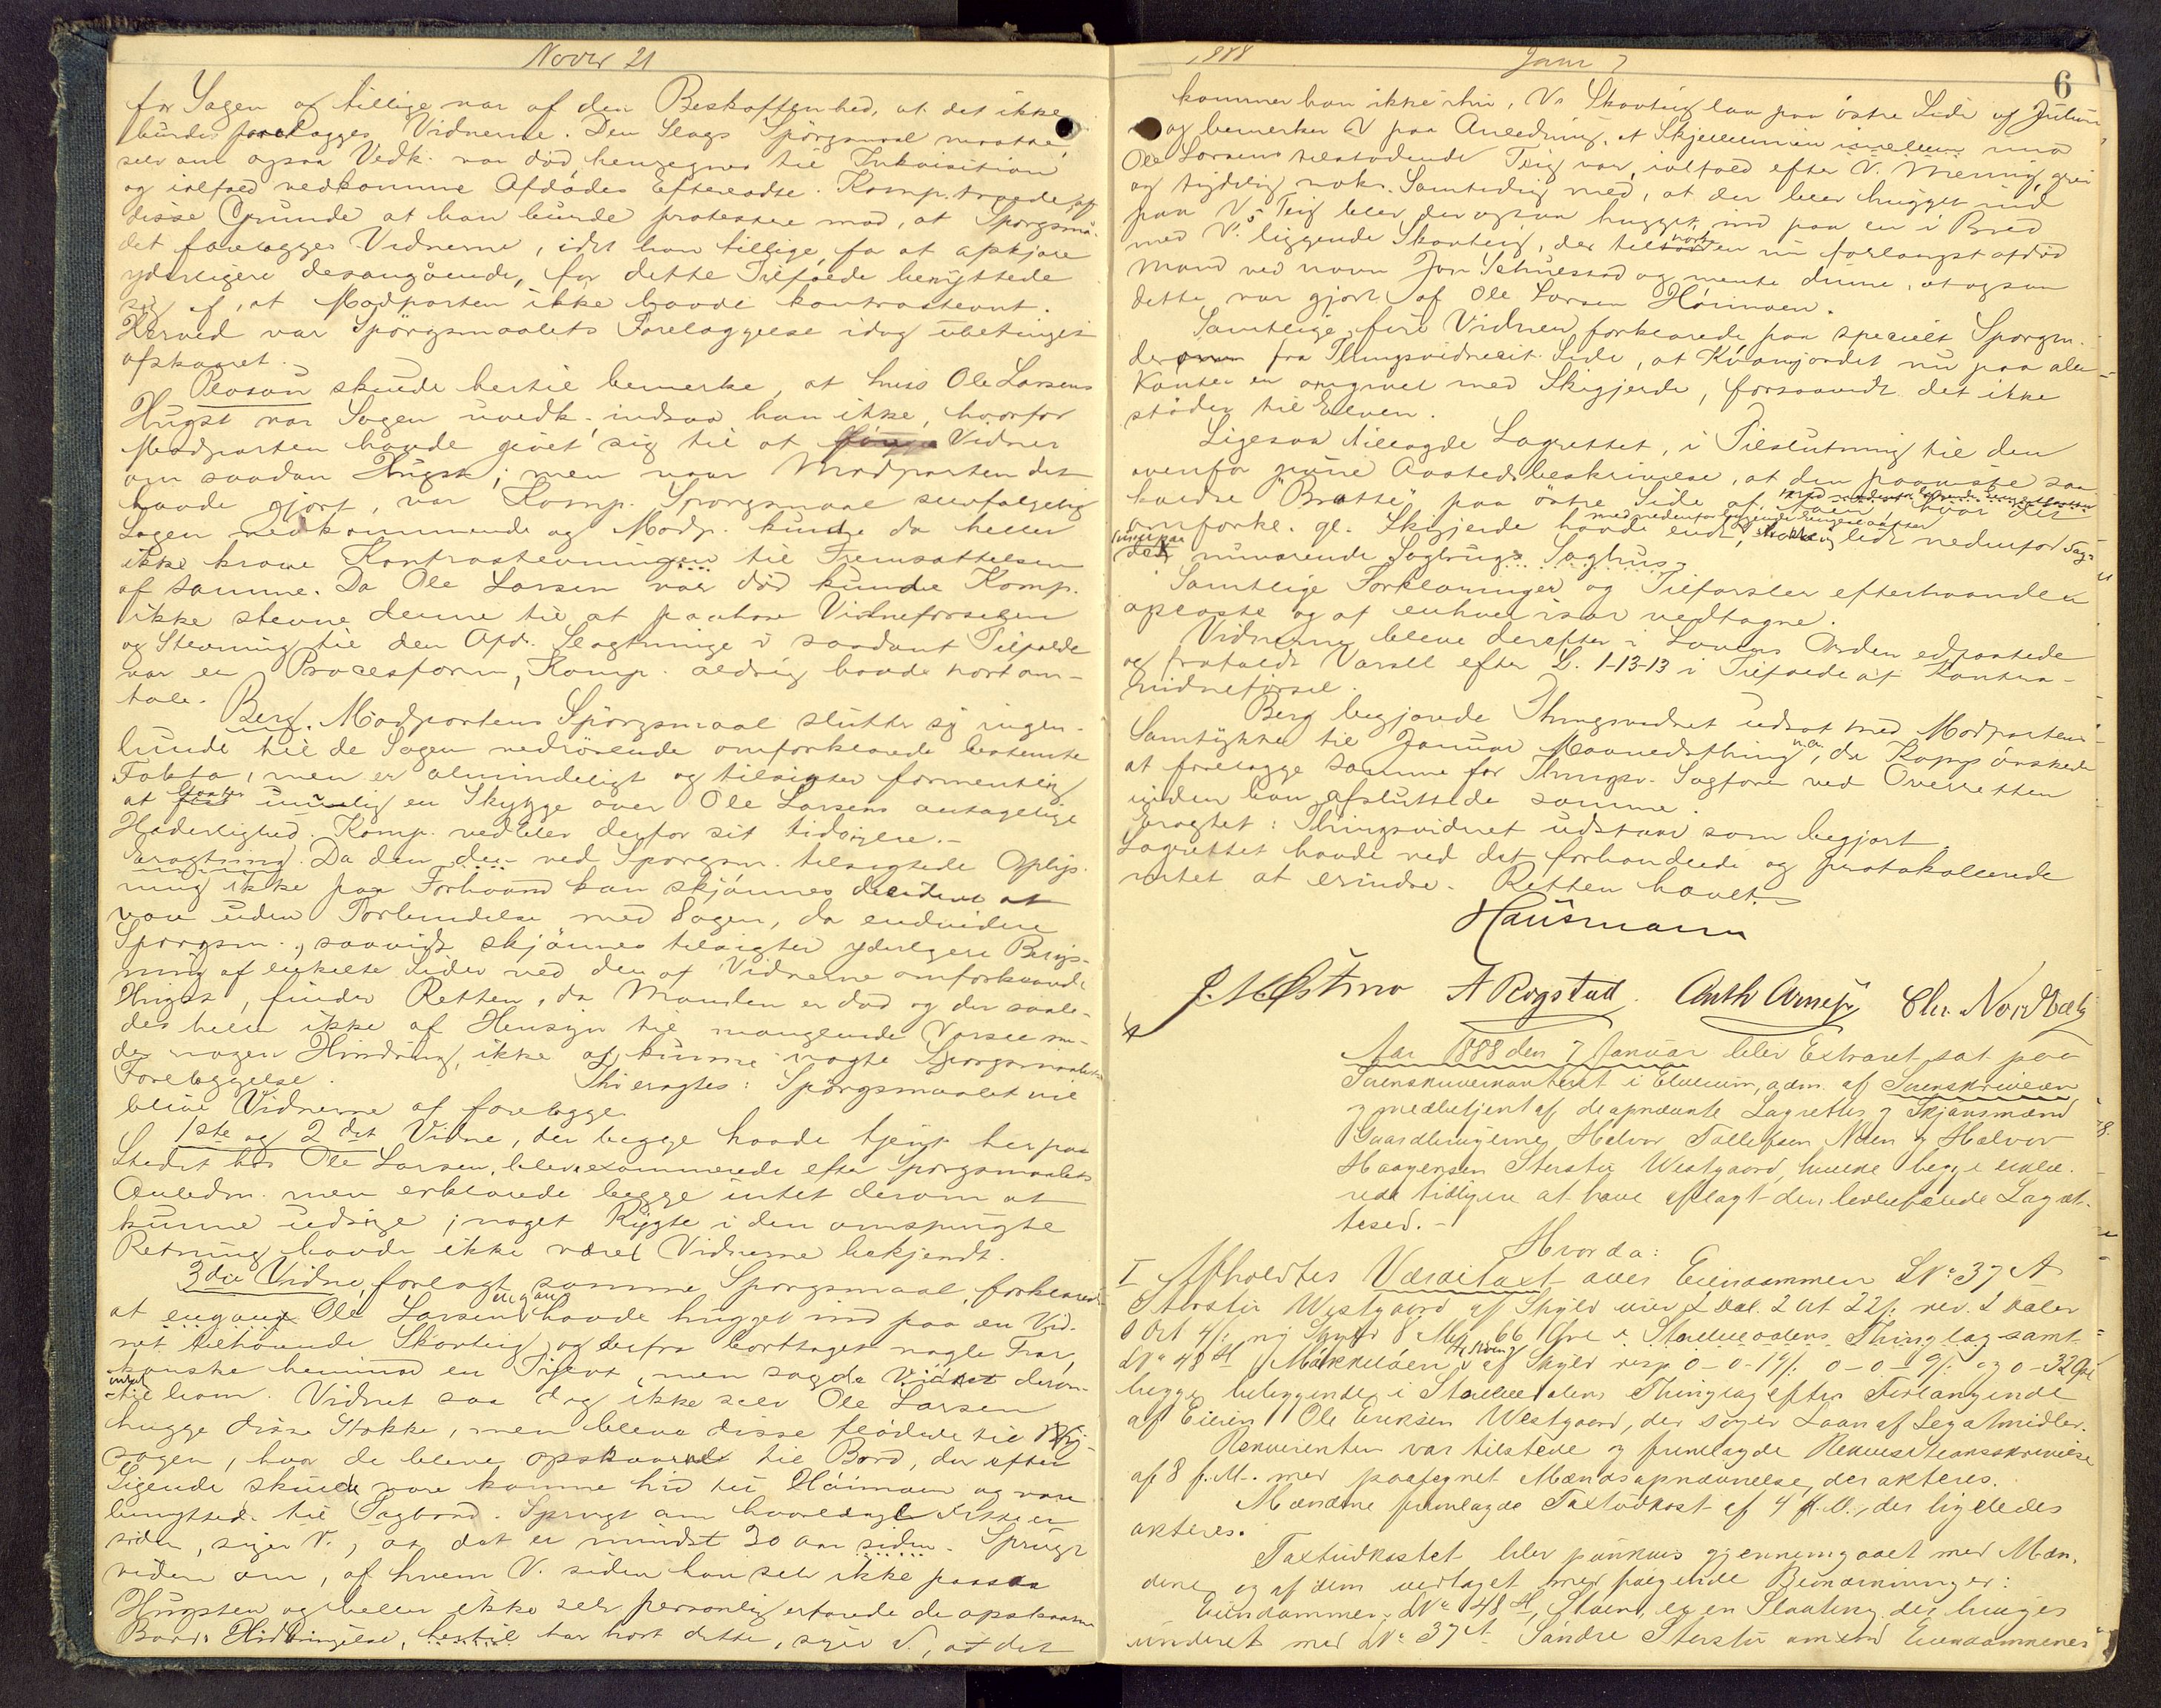 Novbr 21
for Sagen og tillige var af den Beskaffenhed, at det ikke
burde forelægges Vidnerne. Den Slags Spörgsmaal maatte,
selv om ogsaa Vedk. var död, henregnes til Inkvisition
og ialfald vedkomme Afdödes Eftermæle. Komp. troede af
disse Grunde at han burde protestere mod, at Spørgsmaa-
det forelægges Vidnerne, idet han tillige, for at afskjære
yderligere desangående, for dette Tilfælde benyttede
sig af, at Modparten ikke havde kontrastevnt.
Herved var Spörgsmaalets Forelæggelse idag ubetinget
afskaaret.
skulde hertil bemerke, at hvis Ole Larsens
Hugst var Sagen uvedk., indsaa han ikke, hvorfor
Modparten havde givet sig til at Vidner
om saadan Hugst; men naar Modparten det
havde gjort, var Komp. Spørgsmaal selvfølgelig
Sagen vedkommende og Modp. kunde da heller
ikke kræve Kontrastevningen til Fremsættelsen
af samme. Da Ole Larsen var död kunde Komp.
ikke stevne denne til at paahøre Vidneförselen
og Stevning til den Afd. Slægtninge i saadant Tilfælde
var en Procesform, Komp. aldrig havde hört om-
tale.
Berg. Modpartens Spörgsmaal slutter sig ingen-
lunde til de Sagen vedrörende omforklarede bestemte
Fakta, men er almindeligt og tilsigter formentlig
at kaste en Skygge over Ole Larsens antagelige
Hæderlighed. Komp. vedblev derfor sit tidligere.-
Eragtning. Da den ved Spørgsm. tilsigtede Oplys-
ning ikke paa Forhaand kan skjönnes at
være uden Forbindelse med Sagen, da endvidere
Spørgsm., saavidt skjönnes tilsigter yderligere Belys-
ning af enkelte Sider ved den af Vidnerne omforklarede
Hugst, finder Retten, da Manden er död og der saale-
des heller ikke af Hensyn til manglende Varsel mö-
der nogen Hindring, ikke at kunne nægte Spørgsmaalets
Forelæggelse. Thi eragtes: Spørgsmaalet vil
blive Vidnerne at forelægge
1ste og 2det Vidne, der begge havde tjent her paa
Stedet hos Ole Larsen, blev examinerede efter Spørgsmaalets
Anledn. men erklærede begge intet derom at
kunne udsige; noget Rygte i den omspurgte
Retning havde ikke været Vidnerne bekjendt.
3die Vidne, forelagt samme Spørgsmaal, forklarede
at engang Ole Larsen havde hugget ind paa en Vid-
net tilhörende Skovteig og derfra borttaget nogle Trær,
kanske henimod en Tylvt, men sagde Vidnet derom
intet til ham. Vidnet saa dog ikke selv Ole Larsen
hugge disse Stokke, men bleve disse flödede til
sagen, hvor de bleve opskaaret til Bord, der efter
Sigende skulde være komne hid til Höimoen og være
benyttede til Tagbord. Spurgt om hvorlænge dette er
siden, siger V., at det er mindst 30 aar siden. Spurgt
videre om, af hvem V. siden han selv ikke paasaa
Hugsten og heller ikke selv personlig erfarede de opskaarne
Bords Hidbringelse, hertil har hört dette, siger V., at det
1888 Janr 7
6
kommer han ikke ihu. V.s Skovteig laa paa östre Side af Julien
og bemerker V. paa Anledning, at Skjellinien imellem min
Ole Larsens tilstødende Teig var, ialfald efter V. Mening, grei
og tydelig nok. Samtidig med, at der blev hugget ind
paa V.s Teig blev der ogsaa hugget ind paa en i Bred
med V.s liggende Skovteig, der tilhörte en nu forlængst afdöd
Mand ved navn Jon og mente denne, at ogsaa
dette var gjort af Ole Larsen Höimoen.
Samtlige fire Vidner forklarede paa specielt Spørgm.
derom fra Thingsvidnetit. Side, at Kvænjordet nu paa alle
Kanter er omgivet med Skigjerde, forsaavidt det ikke
stöder til Elven.
Ligesaa tillagde Lagrettet, i Tilslutning til den
ovenfor givne Aastedsbeskrivelse, at den paaviste saa-
kaldte "Bratte" paa östre Side af hvor det
omforkl. gl. Skigjerde havde endt, lidt nedenfor Sag-
det nuværende Sagbrugs Saghus.
Samtlige Forklaringer og Tilførsler efterhaanden
oplæste og af enhver især vedtagne.
Vidnerne bleve derefter i Lovens Orden edfæstede
og frafaldt Varsel efter L. 1-13-13 i Tilfælde af Kontra-
vidneförsel.
Berg begjærede Thingsvidnet udsat med Modpartens
Samtykke til Januar Maanedsthing, da Komp. önskede
at forelægge samme for Sagfører ved Overretten
inden han afsluttede samme.
Eragtet: Thingsvidnet udstaar som begjært
Lagrettet havde ved det forhandlede og protokollerede
intet at erindre. Retten hævet.
Hausmann
J. M. Østmo A Rogstad Anth Arnesen Chr. Nordbæk
Aar 1888 den 7 Januar blev Extraret sat paa
Sorenskriverkontoret i Elverum, adm. af Sorenskriveren
og mebetjent af de opnævnte Lagrettes og Skjønsmænd
Gaardbrugerne Halvor Tollefsen Næen og Halvor
Haagensen Sterstu Westgaard, hvilke begge erklæ-
rede tidligere at have aflagt den lovbefalede Lagret-
tesed.-
Hvor da:
I Afholdtes Værditaxt over Eiendommen LNo 37 A
Sterstu Westgaard af Skyld 2 Dal. 2 Ort 22 s. rev. 2 Daler
0 Ort 4 s. ny Skyld 8 Mk 66 Øre i Storelvdalens Thinglag samt
LNo 48 H af Skyld resp. 0-0-17 s. 0-0-9 s. og 0-32 Øre
begge beliggende i Storelvdalens Thinglag efter Forlangende
af Eieren Ole Eriksen Westgaard, der søger Laan af Legatmidler.
Rekvirenten var tilstede og fremlagde Rekvisitionsskrivelse
af 8 f. M. med paategnet Mændsopnævnelse, der akteres.
Mændene fremlagde Taxtudkast af 4 d. M., der ligeledes
akteres.
Taxtudkastet blev punktvis gjennemgaaet med Mæn-
dene og af dem vedtaget med følgende Bemærkninger:
Eiendommen LNo 48 H, er en Slaateng der bruges
under et med LNo 37 A Søndre Sterstu Eiendommenes